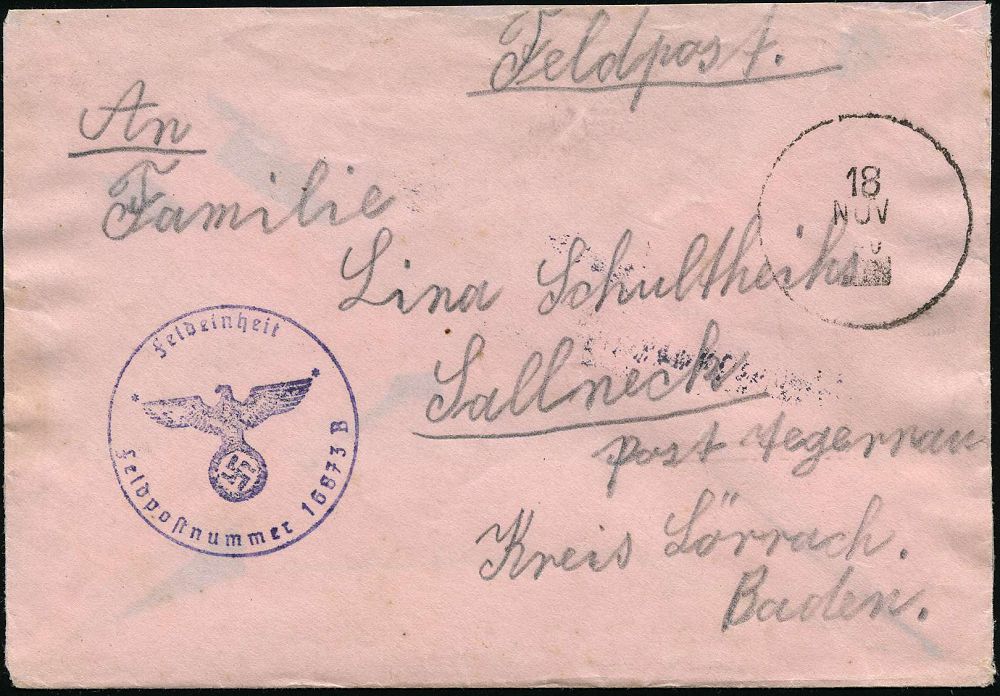 Feldpost.
An
Familie
Lina Schultheiß
Sallneck
post Tegernau
Kreis Lörrach.
Baden.
18
NOV
Feldeinheit
* *
Feldpostnummer 16873 B